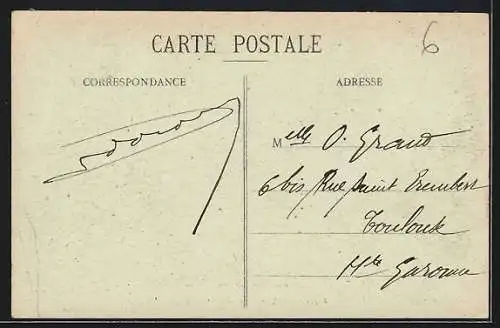 CARTE POSTALE
6
CORRESPONDANCE
ADRESSE
Melle O. Grand
6 bis Rue Saint Exembert
Toulouse
Hte Garonne